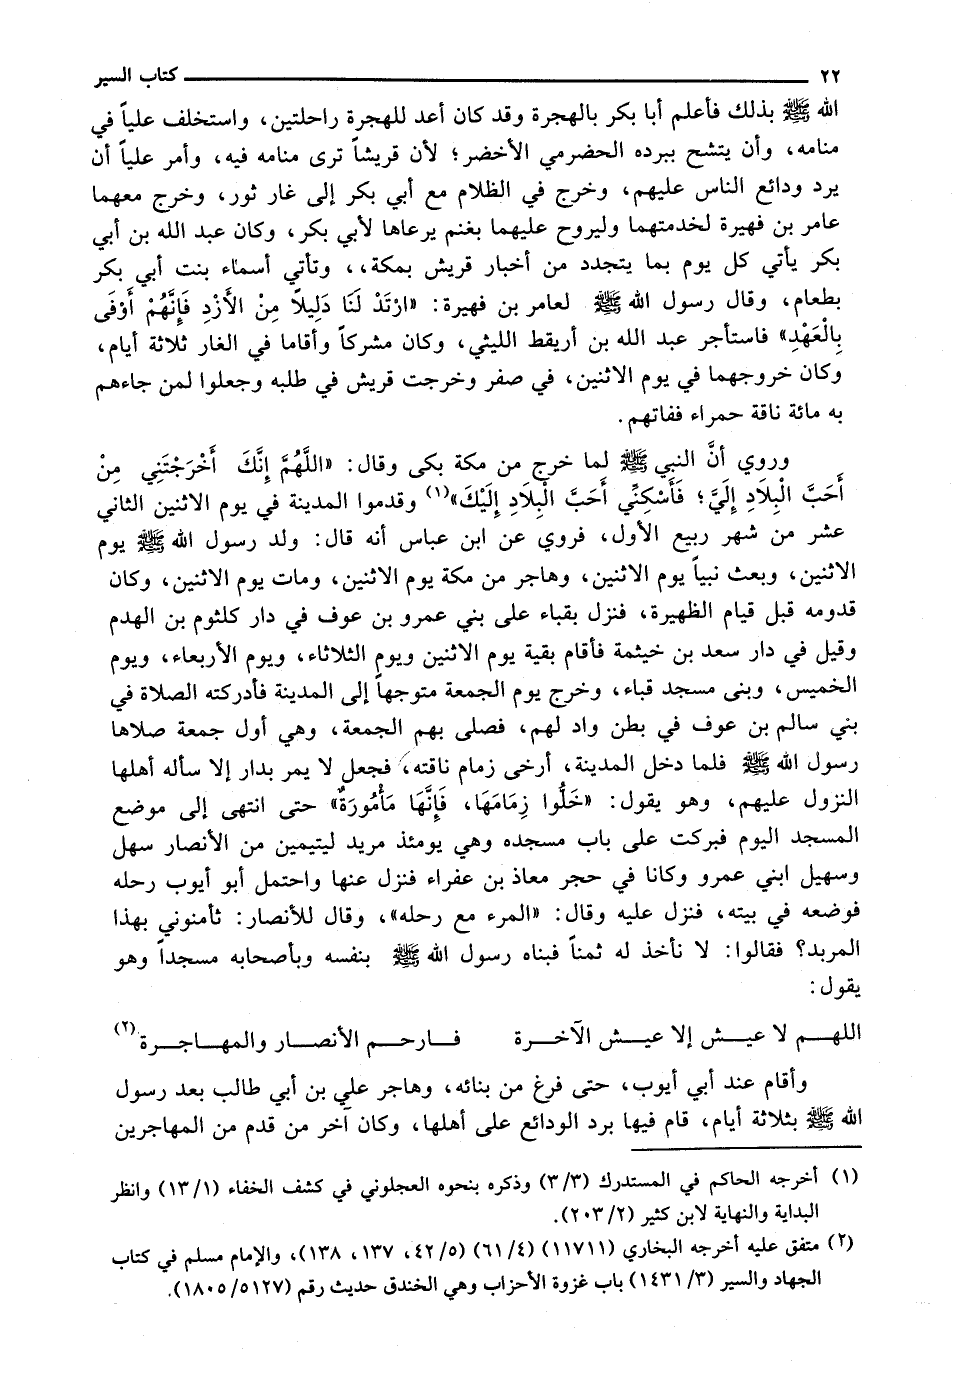 ٢٢ كتاب السير
الله ﷺ بذلك فأعلم أبا بكر بالهجرة وقد كان أعد للهجرة راحلتين، واستخلف علياً في
منامه، وأن يتشح ببرده الحضرمي الأخضر؛ لأن قريشاً ترى منامه فيه، وأمر علياً أن
يرد ودائع الناس عليهم، وخرج في الظلام مع أبي بكر إلى غار ثور، وخرج معهما
عامر بن فهيرة لخدمتهما وليروح عليهما بغنم يرعاها لأبي بكر، وكان عبد الله بن أبي
بكر يأتي كل يوم بما يتجدد من أخبار قريش بمكة،، وتأتي أسماء بنت أبي بكر
بطعام، وقال رسول الله ﷺ لعامر بن فهيرة: «ارْتَدْ لَنَا دَلِيلاً مِنْ الأَزْدِ فَإِنَّهُمْ أَوْفَى
بِالْعَهْدِ» فاستأجر عبد الله بن أريقط الليثي، وكان مشركاً وأقاما في الغار ثلاثة أيام،
وكان خروجهما في يوم الاثنين، في صفر وخرجت قريش في طلبه وجعلوا لمن جاءهم
به مائة ناقة حمراء ففاتهم.
وروي أنَّ النبي ﷺ لما خرج من مكة بكى وقال: «اللَّهُمَّ إِنَّكَ أَخْرَجْتَنِي مِنْ
أَحَبَّ الْبِلَادِ إِلَيَّ؛ فَأَسْكِنِّي أَحَبَّ الْبِلَادِ إِلَيْكَ»(١) وقدموا المدينة في يوم الاثنين الثاني
عشر من شهر ربيع الأول، فروي عن ابن عباس أنه قال: ولد رسول الله ﷺ يوم
الاثنين، وبعث نبياً يوم الاثنين، وهاجر من مكة يوم الاثنين، ومات يوم الاثنين، وكان
قدومه قبل قيام الظهيرة، فنزل بقباء على بني عمرو بن عوف في دار كلثوم بن الهدم
وقيل في دار سعد بن خيثمة فأقام بقية يوم الاثنين ويوم الثلاثاء، ويوم الأربعاء، ويوم
الخميس، وبنى مسجد قباء، وخرج يوم الجمعة متوجهاً إلى المدينة فأدركته الصلاة في
بني سالم بن عوف في بطن واد لهم، فصلى بهم الجمعة، وهي أول جمعة صلاها
رسول الله ﷺ فلما دخل المدينة، أرخى زمام ناقته، فجعل لا يمر بدار إلا سأله أهلها
النزول عليهم، وهو يقول: «خَلُّوا زِمَامَهَا، فَإِنَّهَا مَأْمُورَةٌ» حتى انتهى إلى موضع
المسجد اليوم فبركت على باب مسجده وهي يومئذ مربد ليتيمين من الأنصار سهل
وسهيل ابني عمرو وكانا في حجر معاذ بن عفراء فنزل عنها واحتمل أبو أيوب رحله
فوضعه في بيته، فنزل عليه وقال: «المرء مع رحله»، وقال للأنصار: ثأمنوني بهذا
المربد؟ فقالوا: لا نأخذ له ثمناً فبناه رسول الله ﷺ بنفسه وبأصحابه مسجداً وهو
يقول:
اللهم لا عيش إلا عيش الآخرة فارحم الأنصار والمهاجرة(٢)
وأقام عند أبي أيوب، حتى فرغ من بنائه، وهاجر علي بن أبي طالب بعد رسول
الله ﷺ بثلاثة أيام، قام فيها برد الودائع على أهلها، وكان آخر من قدم من المهاجرين
(١) أخرجه الحاكم في المستدرك (٣/٣) وذكره بنحوه العجلوني في كشف الخفاء (١٣/١) وانظر
البداية والنهاية لابن كثير (٢٠٣/٢).
(٢) متفق عليه أخرجه البخاري (١١٧١١) (٦١/٤) (٤٢/٥، ١٣٧، ١٣٨)، والإمام مسلم في كتاب
الجهاد والسير (١٤٣١/٣) باب غزوة الأحزاب وهي الخندق حديث رقم (١٨٠٥/٥١٢٧).